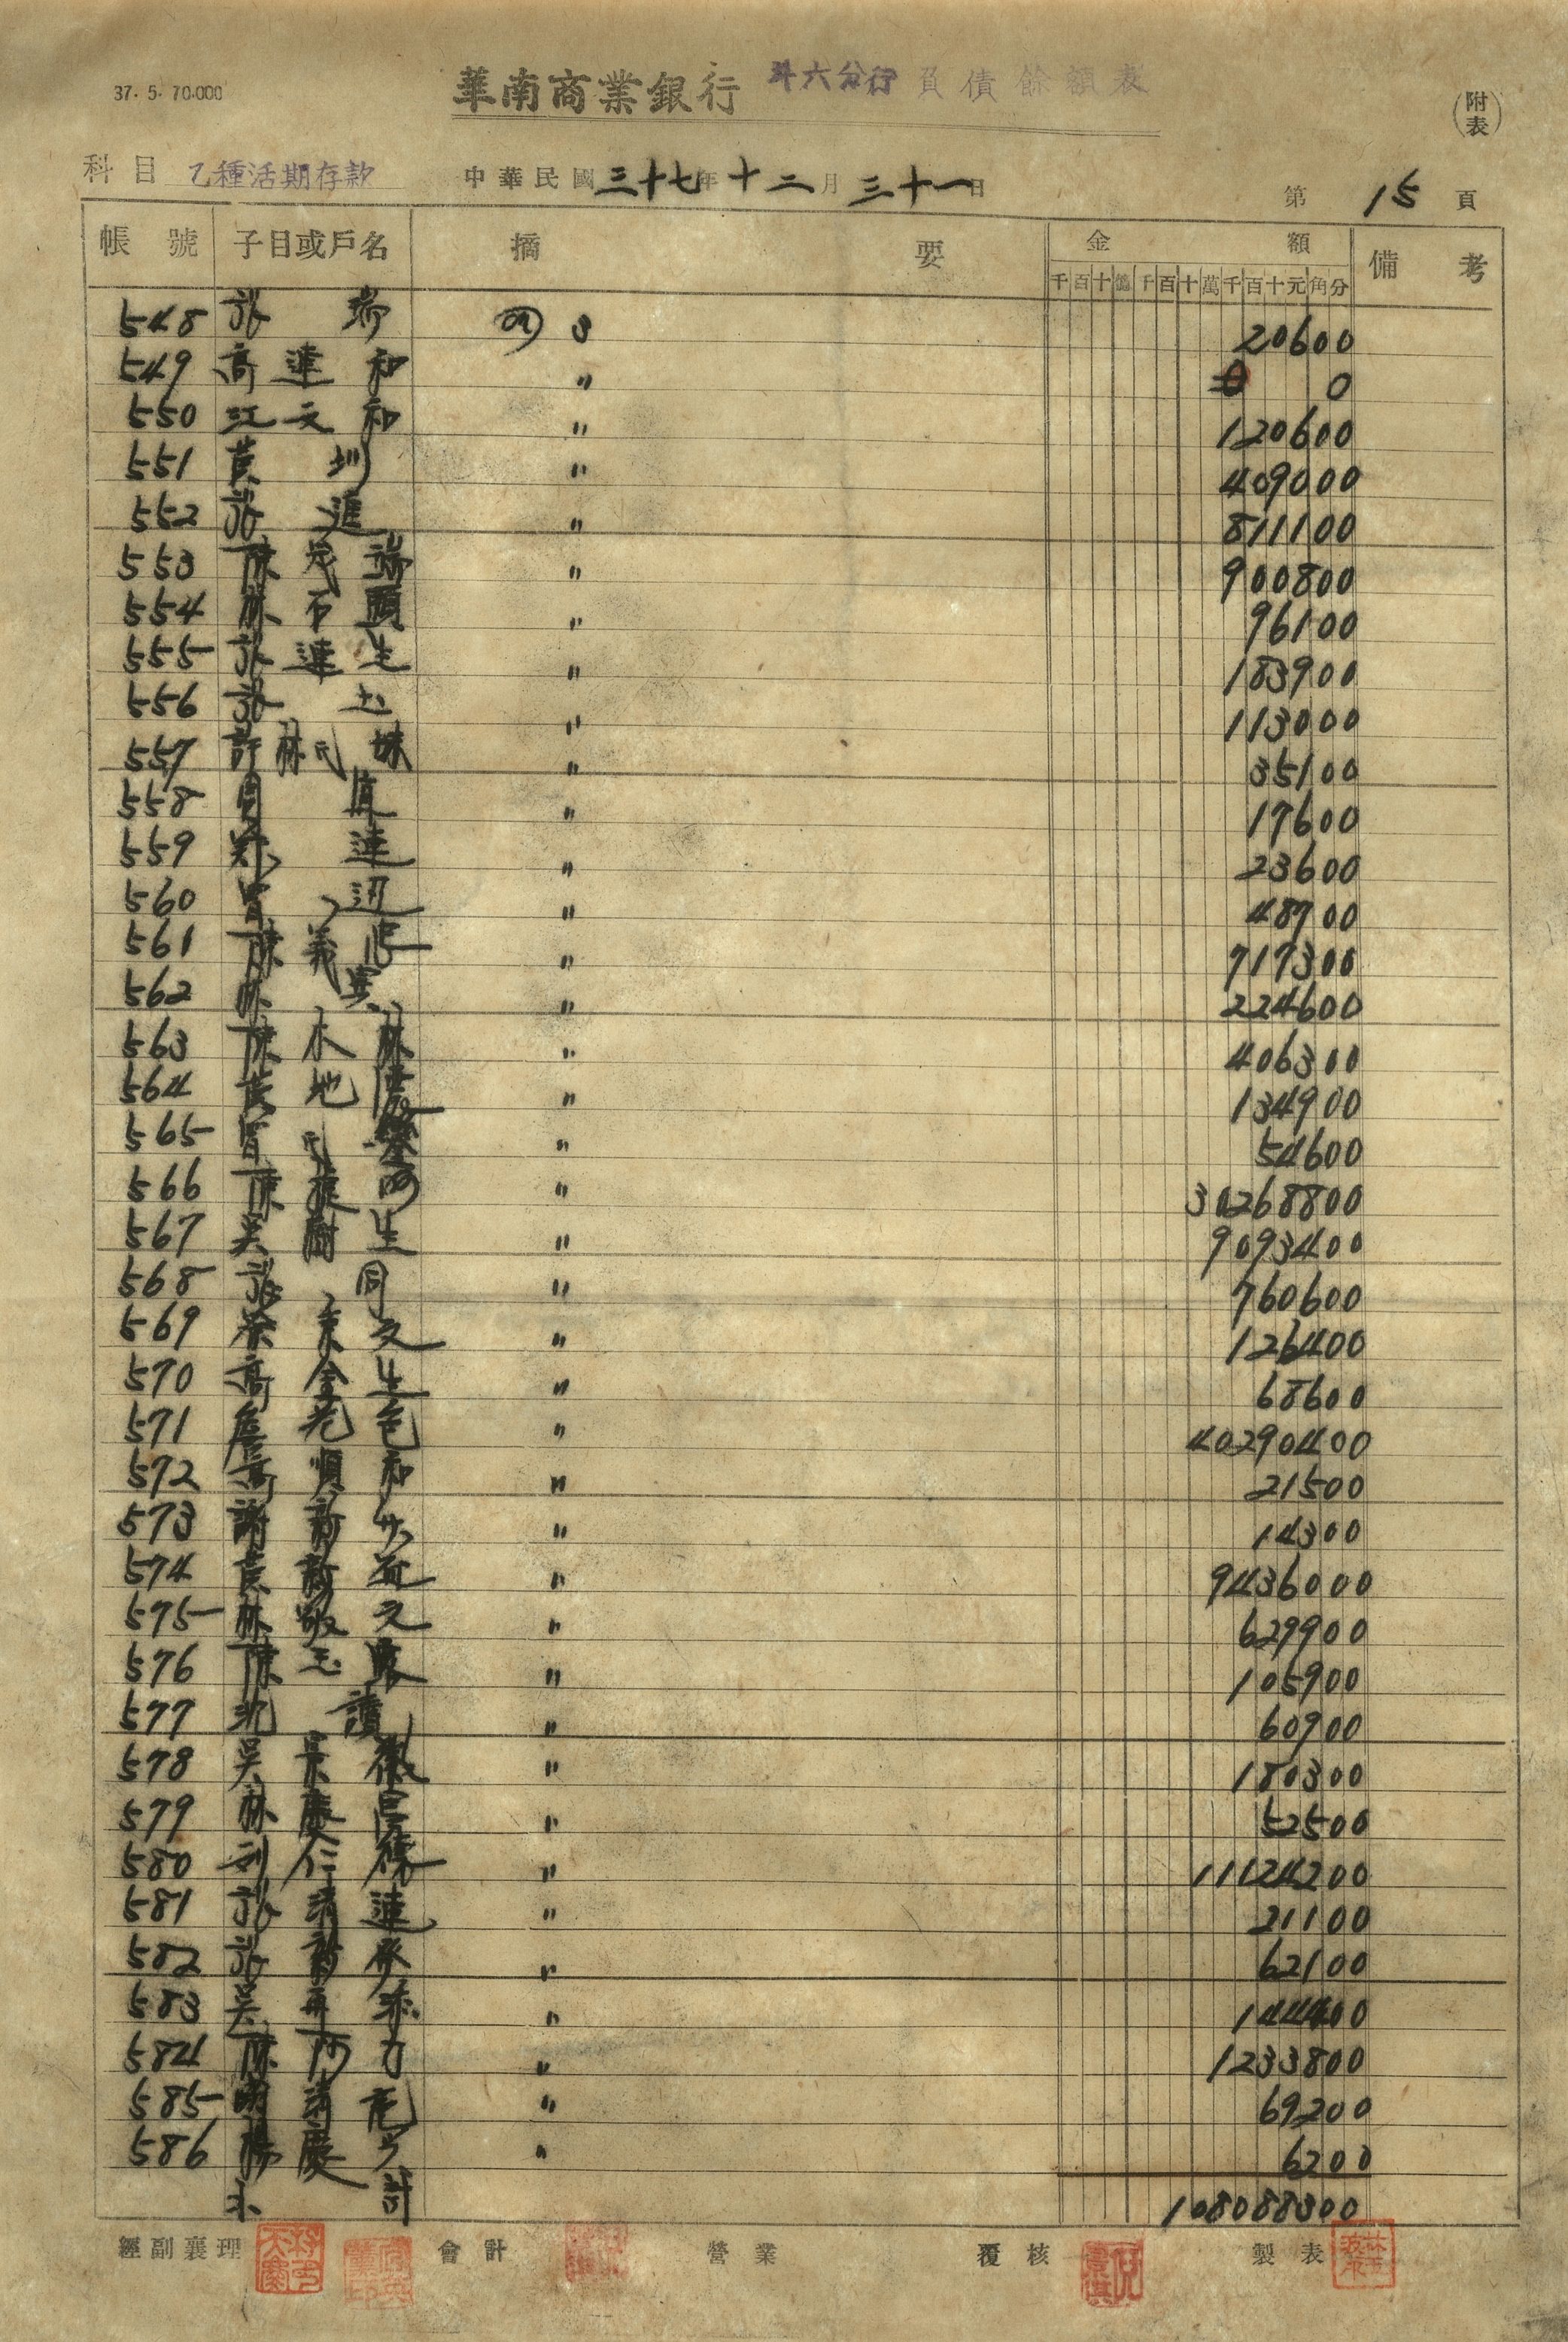 37. 5. 70.000
華南商業銀行 斗六分行 負債餘額表
(附表)
科目 乙種活期存款 中華民國三十七年十二月三十一日 第 15 頁
帳號 子目或戶名 摘要 金額 備考
千百十億千百十萬千百十元角分
548 張 瑞 3 20600
549 高連和 〃 0
550 江文和 〃 120600
551 黃 圳 〃 409000
552 張 進 〃 811100
553 陳茂瑞 〃 900800
554 林石頭 〃 96100
555 張連生 〃 183900
556 張 土 〃 113000
557 許林氏妹 〃 35100
558 直 〃 17600
559 鄭 連 〃 23600
560 曾 〃 48700
561 陳義忠 〃 717300
562 林 〃 224600
563 陳木麻 〃 406300
564 黃地 〃 134900
565 曾氏 〃 54600
566 陳 〃 30268800
567 吳樹生 〃 9093400
568 張 同 〃 760600
569 文 〃 126400
570 高金生 〃 68600
571 詹老色 〃 40290400
572 高順和 〃 21500
573 謝新 〃 14300
574 黃 〃 9436000
575 林敬文 〃 629900
576 陳玉 〃 105900
577 沈 讀 〃 60900
578 吳景徽 〃 180300
579 林慶 〃 52500
580 劉仁 〃 11124200
581 張清連 〃 21100
582 張新 〃 62100
583 吳再添 〃 144400
584 陳阿力 〃 1233800
585 清 〃 69200
586 楊慶 〃 6200
小計 108088300
經副襄理 會計 營業 覆核 製表